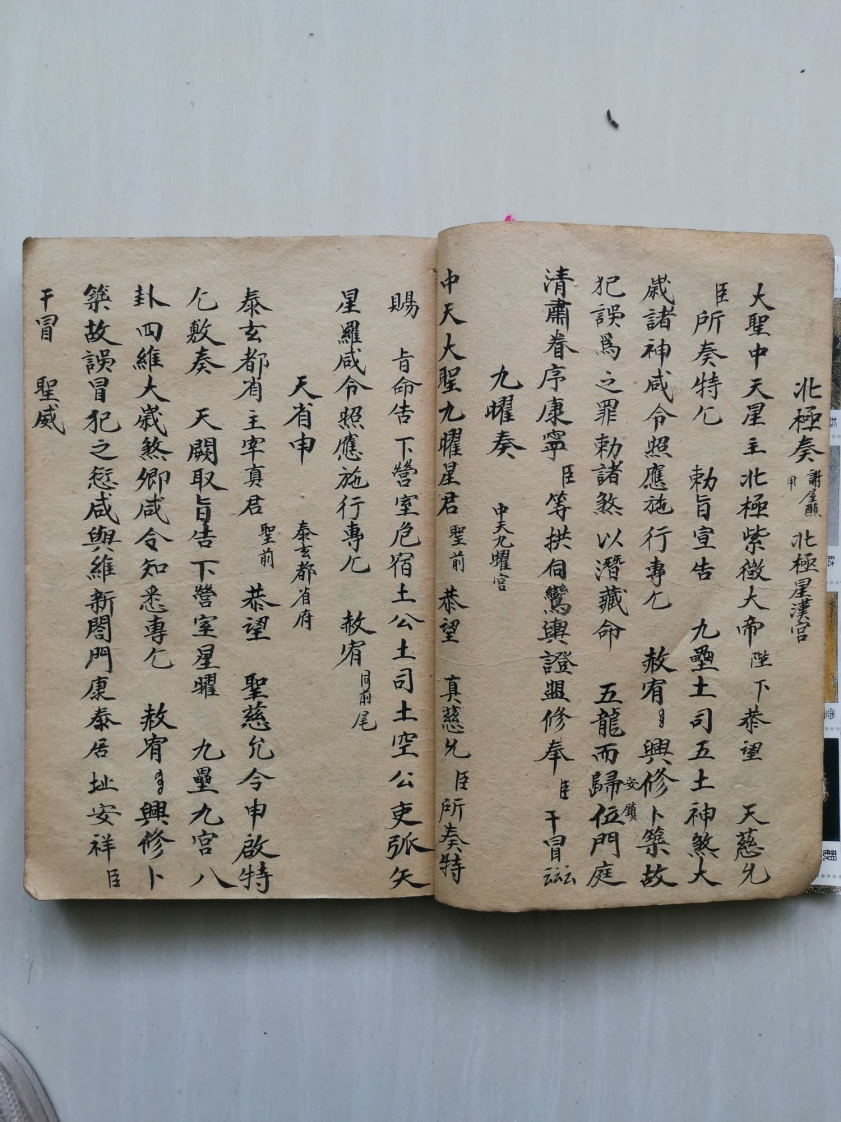 北極奏 謝屋 用 北極星漢宮
大聖中天星主北極紫微大帝陛下恭望 天慈允
臣所奏特乞 勅旨宣告 九壘土司五土神煞大
歲諸神咸令照應施行專乞 赦宥 興修卜築故
犯誤為之罪勅諸煞以潛藏命 五龍而歸位安鎮門庭
清肅眷序康寧 臣等拱伺鸞輿證盟修奉 臣干冒云云
九曜奏 中天九曜宮
中天大聖九曜星君 聖前 恭望 真慈允臣所奏特
賜 旨命告下營室危宿土公土司土空公吏弧矢
星羅咸令照應施行專乞 赦宥 同前尾
天省申 泰玄都省府
泰玄都省主宰真君 聖前 恭望 聖慈允令申啟特
乞敷奏 天闕取旨告下營室星曜 九壘九宮八
卦四維大歲煞卿咸令知悉專乞 赦宥 興修卜
築故誤冒犯之愆咸與維新閤門康泰居址安祥臣
干冒 聖威
觀